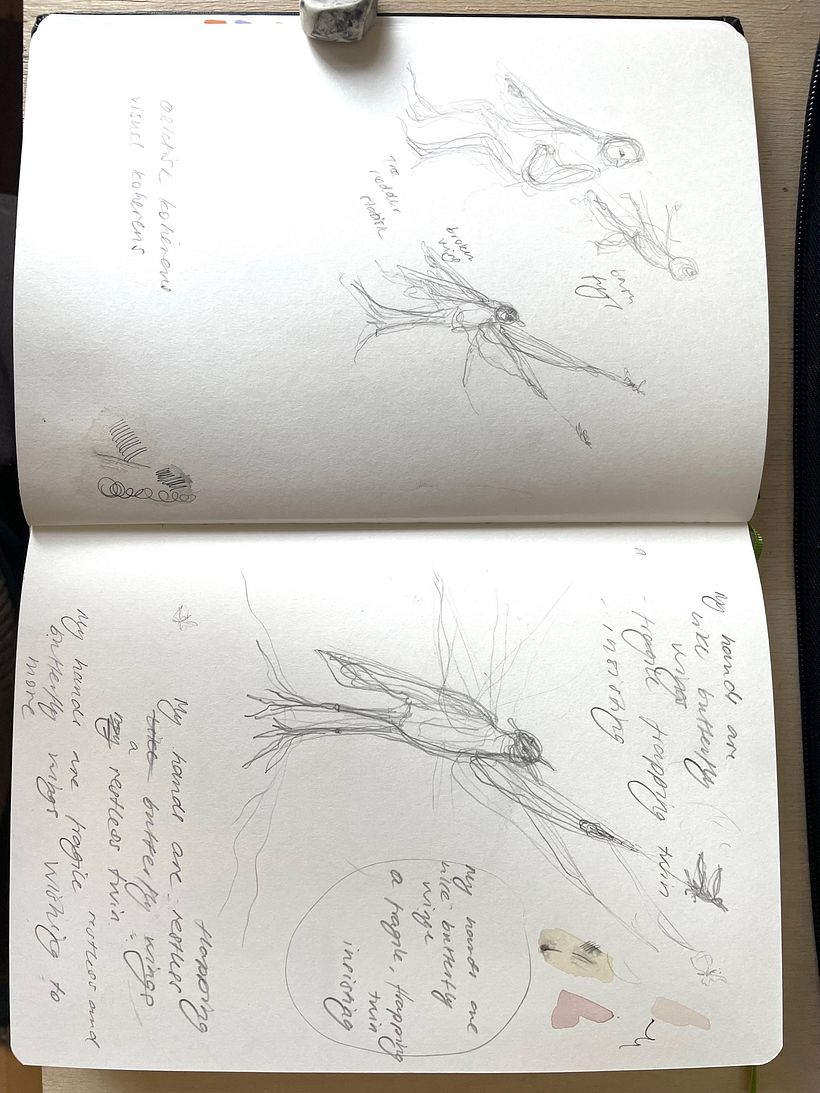 visuel koherens
broken
wings
barn
My hands are
like butterfly
wings
- fragile flapping twin
- insisting
My hands are
like butterfly
wings
a fragile, flapping
twin
insisting
flapping
My hands are restless
like butterfly wings
a
my restless twin
My hands are fragile restless and
butterfly wings wishing to
more